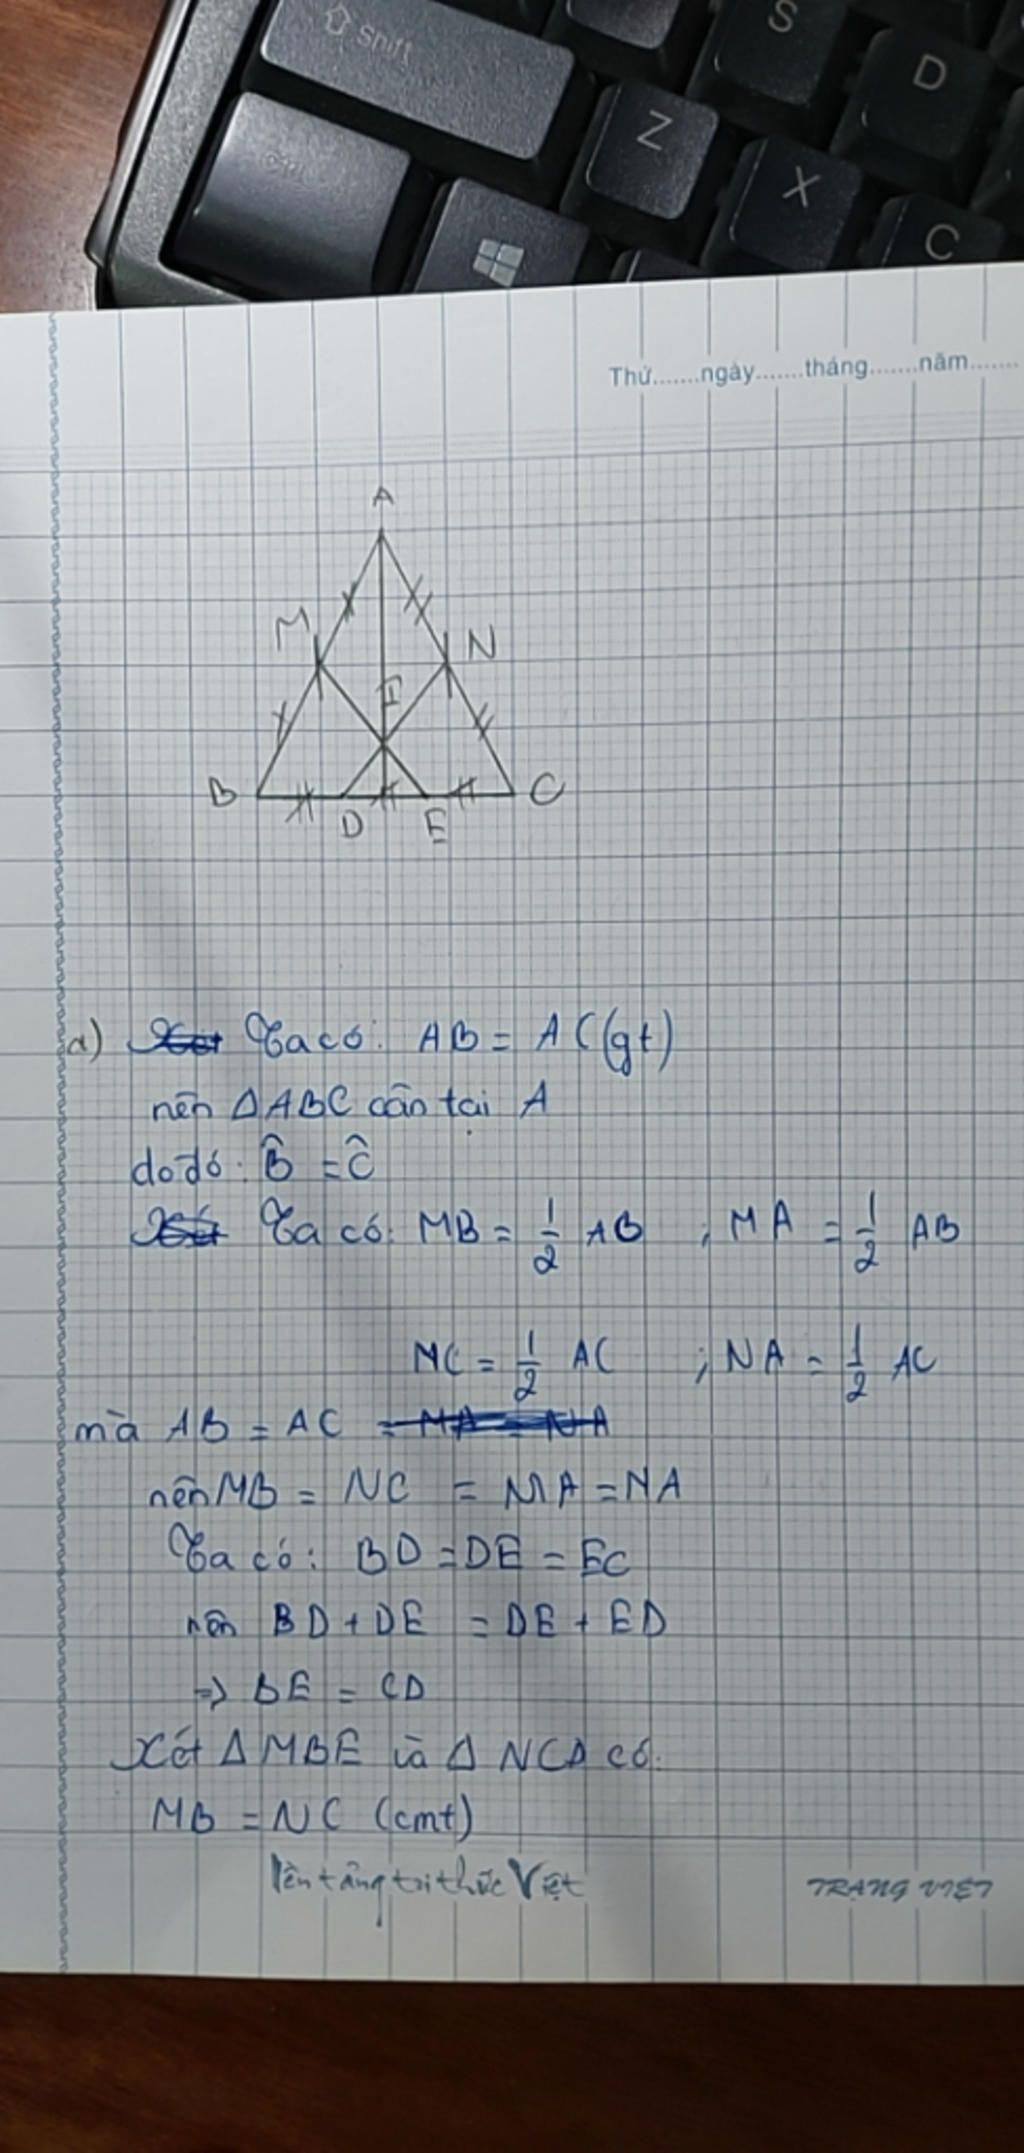 Shift
S
D
Z
X
C
Thứ.......ngày.......tháng.......năm.......
A
M
N
I
B
D
E
C
a) Ta có: AB = AC (gt)
nên ΔABC cân tại A
do đó: B̂ = Ĉ
Ta có: MB = 1/2 AB ; MA = 1/2 AB
NC = 1/2 AC ; NA = 1/2 AC
mà AB = AC = MA = NA
nên MB = NC = MA = NA
Ta có: BD = DE = EC
nên BD + DE = DE + ED
=> BE = CD
Xét Δ MBE và Δ NCD có:
MB = NC (cmt)
tảng tri thức Việt
TRANG VIET